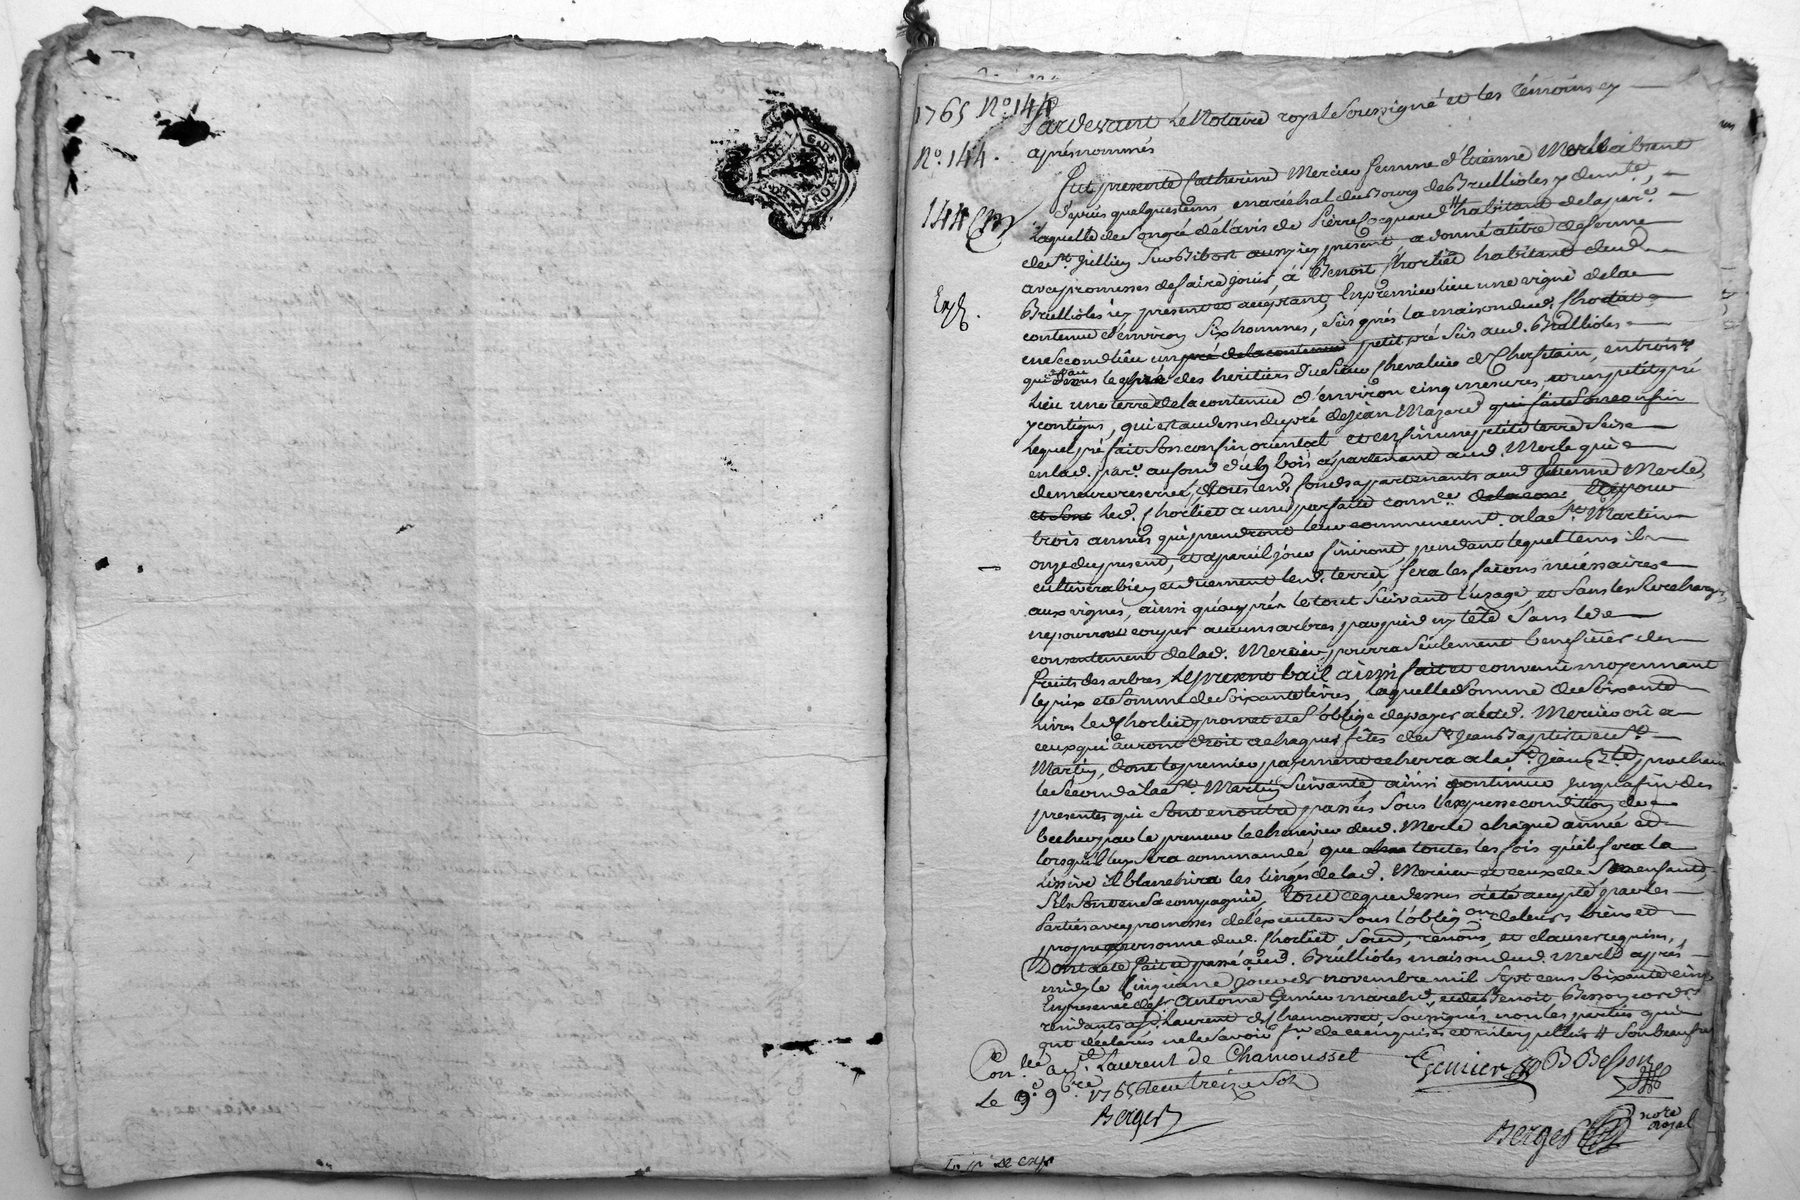 GEN. DE LYON
1765 No. 144
No. 144.
144
Exp.
Pardevant Le Notaire royal Soussigné et les témoins cy
après nommés
fut presente Catherine Mercier femme d'Etienne Merle absent
depuis quelques tems maréchal du Bourg de Brullioles y demte,
laquelle de Son gré de l'avis de Pierre habitant de la parr.
de St. Jullien Sur Bibost aussy icy présent a donné a titre de ferme
avec promesses de faire jouir, à Benoit Chorliet habitant dud.
Brullioles icy present et acceptant, En premier lieu une vigne de la
contenue d'environ Six hommes, Sise près la maison dud. Chorliet
en Second lieu un pré de la contenue petit pré Sis aud. Brullioles
qui le pré des heritiers du Sieur Chevalier de, en trois.
Lieu une terre de la contenue d'environ cinq mesures, et un petit pré
y contigus, qui est au dessus du pré de Jean Mazard qui fait Son confin
lequel pré fait Son confin orient et enfin une petite terre Sise
en lad. parr. au fond d'un bois apartenant aud. Merle qui
demeure reservé, tous lesd. fonds appartenants aud. Etienne Merle,
et dont led. Chorliet a une parfaite conn.ce et pour
trois années qui prendront leur commencement. a la St. Martin
onze du present, et a pareil jour finiront, pendant lequel tems il
cultivera bien et duement lesd. terres, fera les façons nécéssaires
aux vignes, ainsi qu'aux prés le tout Suivant l'uzage, et Sans les Surcharger,
ne pourront couper aucuns arbres par pied ny tête Sans le
consentement de lad. Mercier, pourra Seulement beneficier des
fruits des arbres, Le present bail ainsi fait et convenu moyennant
le prix et Somme de Soixante livres, laquelle Somme de Soixante
livres led. Chorliet promet et S'oblige de payer a lad. Mercier où a
ceux qui auront droit a chaques fêtes de St. Jean Baptiste et St.
Martin, dont le premier payement echerra a la St. Jean Bte. prochain
le Second à la St. Martin Suivante, ainsi continuer jusqu'a fin des
presentes qui Sont en outre passées Sous l'expresse condition de
becher par le preneur le chenevier dud. Merle chaque année et
lorsqu'il luy Sera commandé que toutes les fois qu'il fera la
Lissive il blanchira les linges de lad. Mercier et ceux de Ses enfants,
S'ils Sont en Sa compagnie, tout ce que dessus a été accepté par les
Parties avec promesses de l'executer Sous l'oblig.on de leurs biens et
propre personne dud. Chorliet Soum, renons, et clauses requises,
Dont acte fait et passé aud. Brullioles maison dud. Merle après
midy le Cinquieme jour de novembre mil Sept cens Soixante cinq,
En presence de Sr. Antoine Genier march. et de Benoit Besson cord.r
residants a St. Laurent de Chamousset, Soussignés, non les parties qui
ont déclarés ne le Savoir fre. de ce enquises et interpellés
Conllée a St. Laurent de Chamousset
Le 9e. 9bre. 1765 Reçu treize Sols
Berger
Genier
B Besson
Berger
nore royal